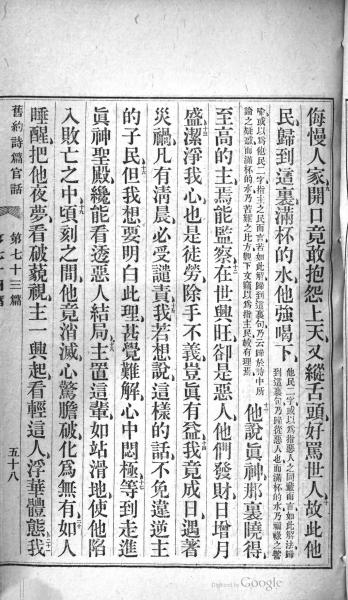 侮慢人家開口竟敢抱怨上天又縱舌頭好罵世人故此他
民歸到這裏滿杯的水他強喝下
他民二字或以爲指惡人之同羣而言如此解法歸
到這裏句乃歸從惡人也而滿杯的水乃福祿之譬
喻或以爲他民二字指主之民而言若如此解歸到這裏句乃云歸於詩中所
論之疑惑而滿杯的水乃苦難之比方觀下文竊以爲指主民較有理焉
他說眞神那裏曉得
至高的主焉能監察在世興旺卻是惡人他們發財日增月
盛潔淨我心也是徒勞除手不義豈眞有益我竟成日遇著
災禍凡有清晨必受譴責我若想說這樣的話不免違逆主
的子民但我想要明白此理甚覺難解心中悶極等到走進
眞神聖殿纔能看透惡人結局主置這輩如站滑地使他陷
入敗亡之中頃刻之間他竟消滅心驚膽破化爲無有如人
睡醒把他夜夢看破藐視主一興起看輕這人浮華體態我
舊約詩篇官話
第七十三篇
五十八
Digitized by Google